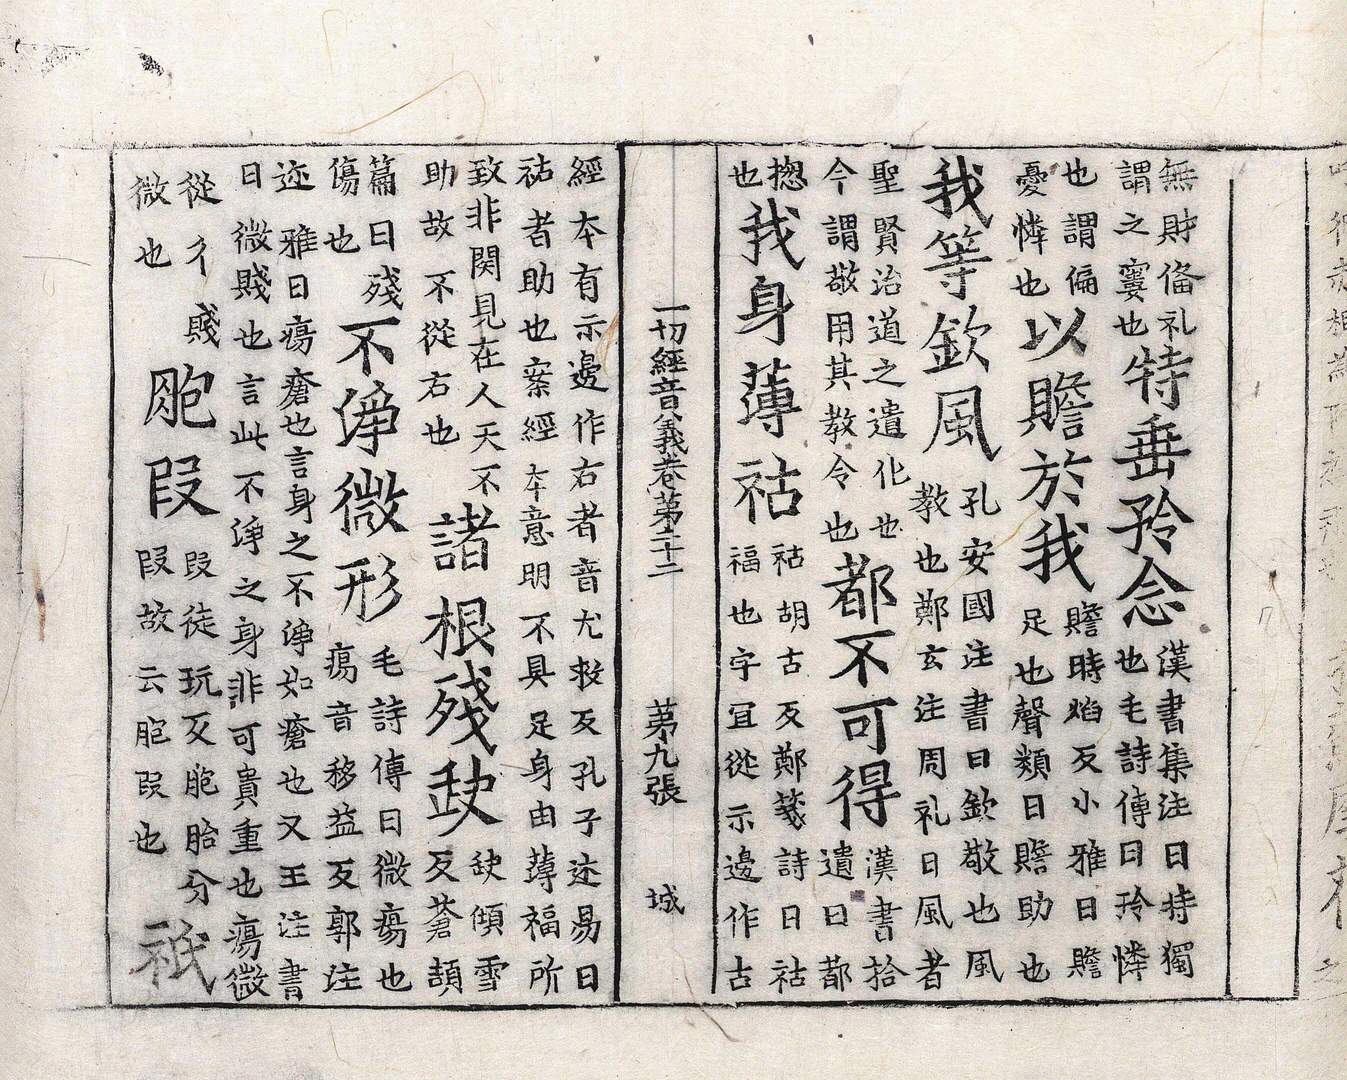 無財俻礼謂之窶也特垂矜念漢書集注曰特獨也毛詩傳曰矜憐
也謂偏憂憐也以贍於我贍時焰反小雅曰贍足也聲類曰贍助也
我等欽風孔安國注書曰欽敬也風教也鄭玄注周礼曰風者
聖賢治道之遺化也今謂敬用其教令也都不可得漢書拾遺曰都
揔也我身薄祜祜胡古反鄭箋詩曰祜福也字冝從示邊作古
一切經音義卷第二十二 第九張 城
經本有示邊作右者音尤救反孔子述易曰祐者助也案經本意明不具足身由薄福所
致非関見在人天不助故不從右也諸根殘缺缺傾雪反蒼頡
篇曰殘傷也不淨微形毛詩傳曰微瘍也瘍音移益反郭注
迩雅曰瘍瘡也言身之不淨如瘡也又王注書曰微賤也言此不淨之身非可貴重也瘍微
從彳賤微也胞段段徒玩反胞胎分段故云胞段也祇